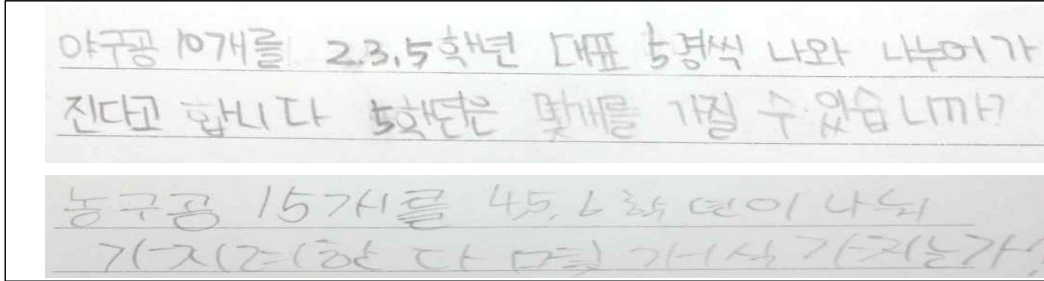 야구공 10개를 2.3.5학년 대표 5명씩 나와 나누어가
진다고 합니다 5학년은 몇개를 가질 수 있습니까?
농구공 15개를 4,5,6 학년이 나눠
가지려한다 몇 개씩 가지는가?